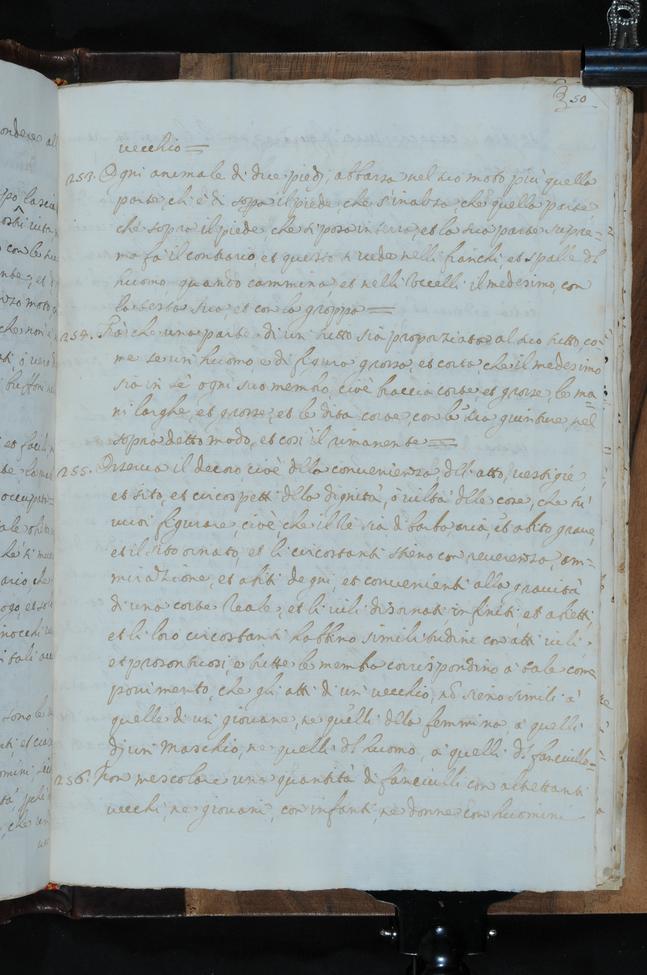 50
vecchio =
253. Ogni animale di due piedi, abbassa nel suo moto più quella
parte, ch'è di sopa il piede, che s'inalza che quella parte
ch'è sopra il piede che si posa in terra, et la sua parte supre=
ma fà il contrario, et questo si vede nelli fianchi, et spalle dl
huomo quando cammina et nelli Uccelli il medesimo, con
la testa sua et con la groppa =
254. Fà che una parte di un tutto sia proporzionata al suo tutto, co=
me se un huomo è di figura grossa, et corta che il medesimo
sia in sè ogni suo membro, cioè braccia corte, et grosse, le ma=
ni larghe, et grosse, et le dita corte, con le sue giunture, nel
sopradetto modo, et così il rimanente =
255. Osserva il decoro cioè della convenienza dell'atto, vestigie,
et sito, et circospetti della dignità, ò viltà delle cose, che tù
vuoi figurare, cioè, che il Rè sia di barba, aria, et abito grave,
et il sito ornato, et li circostanti stieno con reverenza, am=
mirazione, et abiti degni, et convenienti alla gravità
di una corte Reale, et li vili disornati, infiniti et abietti,
et li loro circostanti habbino similitudine con atti vili,
et prosontuosi, e tutte le membra corrispondino à tale com
ponimento, che gli atti di un vecchio, nò sieno simili à
quelle di un giovane, ne quelli della femmina, à quelli
di un Maschio, ne quelli dl huomo, à quelli dl fanciullo=
256. Non mescolare una quantità di fanciulli con altrettanti
vecchi, ne giovani, con infanti, ne donne con huomini